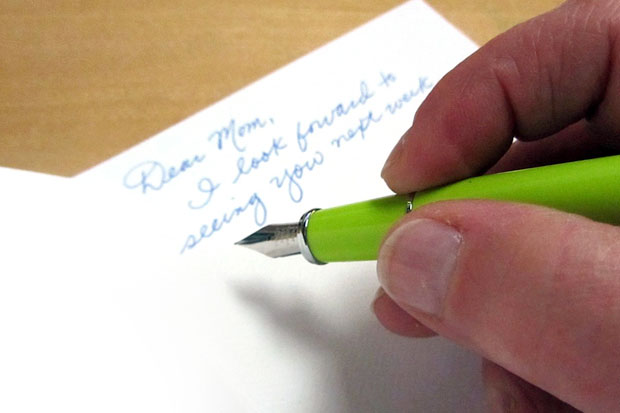 Dear Mom,
I look forward to
seeing you next week